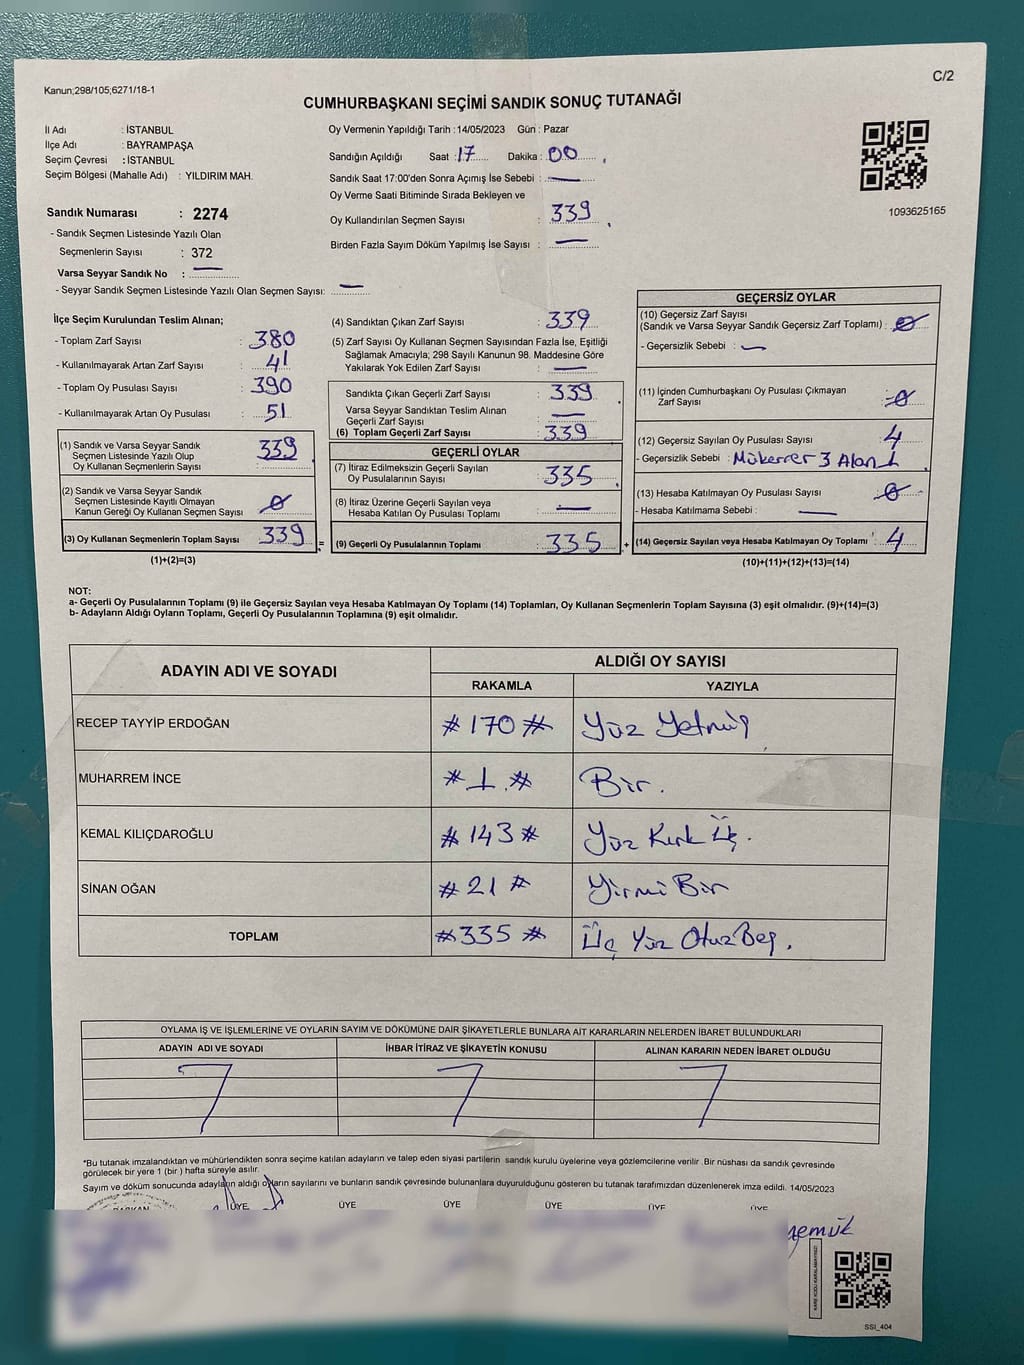 C/2
Kanun;298/105;6271/18-1
CUMHURBAŞKANI SEÇİMİ SANDIK SONUÇ TUTANAĞI
İl Adı : İSTANBUL
İlçe Adı : BAYRAMPAŞA
Seçim Çevresi : İSTANBUL
Seçim Bölgesi (Mahalle Adı) : YILDIRIM MAH.
Sandık Numarası : 2274
- Sandık Seçmen Listesinde Yazılı Olan
Seçmenlerin Sayısı : 372
Varsa Seyyar Sandık No : —
- Seyyar Sandık Seçmen Listesinde Yazılı Olan Seçmen Sayısı: —
Oy Vermenin Yapıldığı Tarih :14/05/2023 Gün : Pazar
Sandığın Açıldığı Saat :17 Dakika: 00
Sandık Saat 17:00'den Sonra Açımış İse Sebebi : —
Oy Verme Saati Bitiminde Sırada Bekleyen ve
Oy Kullandırılan Seçmen Sayısı : 339
Birden Fazla Sayım Döküm Yapılmış İse Sayısı : —
1093625165
İlçe Seçim Kurulundan Teslim Alınan;
- Toplam Zarf Sayısı : 380
- Kullanılmayarak Artan Zarf Sayısı : 41
- Toplam Oy Pusulası Sayısı : 390
- Kullanılmayarak Artan Oy Pusulası : 51
(1) Sandık ve Varsa Seyyar Sandık
Seçmen Listesinde Yazılı Olup
Oy Kullanan Seçmenlerin Sayısı : 339
(2) Sandık ve Varsa Seyyar Sandık
Seçmen Listesinde Kayıtlı Olmayan
Kanun Gereği Oy Kullanan Seçmen Sayısı : 0
(3) Oy Kullanan Seçmenlerin Toplam Sayısı 339 =
(1)+(2)=(3)
(4) Sandıktan Çıkan Zarf Sayısı : 339
(5) Zarf Sayısı Oy Kullanan Seçmen Sayısından Fazla İse, Eşitliği
Sağlamak Amacıyla; 298 Sayılı Kanunun 98. Maddesine Göre
Yakılarak Yok Edilen Zarf Sayısı : —
Sandıkta Çıkan Geçerli Zarf Sayısı : 339
Varsa Seyyar Sandıktan Teslim Alınan
Geçerli Zarf Sayısı : —
(6) Toplam Geçerli Zarf Sayısı : 339
GEÇERLİ OYLAR
(7) İtiraz Edilmeksizin Geçerli Sayılan
Oy Pusulalarının Sayısı : 335
(8) İtiraz Üzerine Geçerli Sayılan veya
Hesaba Katılan Oy Pusulası Toplamı : —
(9) Geçerli Oy Pusulalarının Toplamı : 335 +
GEÇERSİZ OYLAR
(10) Geçersiz Zarf Sayısı
(Sandık ve Varsa Seyyar Sandık Geçersiz Zarf Toplamı) : 0
- Geçersizlik Sebebi : —
(11) İçinden Cumhurbaşkanı Oy Pusulası Çıkmayan
Zarf Sayısı : 0
(12) Geçersiz Sayılan Oy Pusulası Sayısı : 4
- Geçersizlik Sebebi : Mükerrer 3 Alan 1
(13) Hesaba Katılmayan Oy Pusulası Sayısı : 0
- Hesaba Katılmama Sebebi : —
(14) Geçersiz Sayılan veya Hesaba Katılmayan Oy Toplamı : 4
(10)+(11)+(12)+(13)=(14)
NOT:
a- Geçerli Oy Pusulalarının Toplamı (9) ile Geçersiz Sayılan veya Hesaba Katılmayan Oy Toplamı (14) Toplamları, Oy Kullanan Seçmenlerin Toplam Sayısına (3) eşit olmalıdır. (9)+(14)=(3)
b- Adayların Aldığı Oyların Toplamı, Geçerli Oy Pusulalarının Toplamına (9) eşit olmalıdır.
ADAYIN ADI VE SOYADI ALDIĞI OY SAYISI
RAKAMLA YAZIYLA
RECEP TAYYİP ERDOĞAN #170# Yüz Yetmiş
MUHARREM İNCE #1.# Bir.
KEMAL KILIÇDAROĞLU #143# Yüz Kırk Üç.
SİNAN OĞAN #21# Yirmi Bir
TOPLAM #335# Üç Yüz Otuz Beş.
OYLAMA İŞ VE İŞLEMLERİNE VE OYLARIN SAYIM VE DÖKÜMÜNE DAİR ŞİKAYETLERLE BUNLARA AİT KARARLARIN NELERDEN İBARET BULUNDUKLARI
ADAYIN ADI VE SOYADI İHBAR İTİRAZ VE ŞİKAYETİN KONUSU ALINAN KARARIN NEDEN İBARET OLDUĞU
*Bu tutanak imzalandıktan ve mühürlendikten sonra seçime katılan adayların ve talep eden siyasi partilerin sandık kurulu üyelerine veya gözlemcilerine verilir .Bir nüshası da sandık çevresinde
görülecek bir yere 1 (bir.) hafta süreyle asılır.
Sayım ve döküm sonucunda adayların aldığı oyların sayılarını ve bunların sandık çevresinde bulunanlara duyurulduğunu gösteren bu tutanak tarafımızdan düzenlenerek imza edildi. 14/05/2023
BAŞKAN ÜYE ÜYE ÜYE ÜYE ÜYE ÜYE
SSI_404